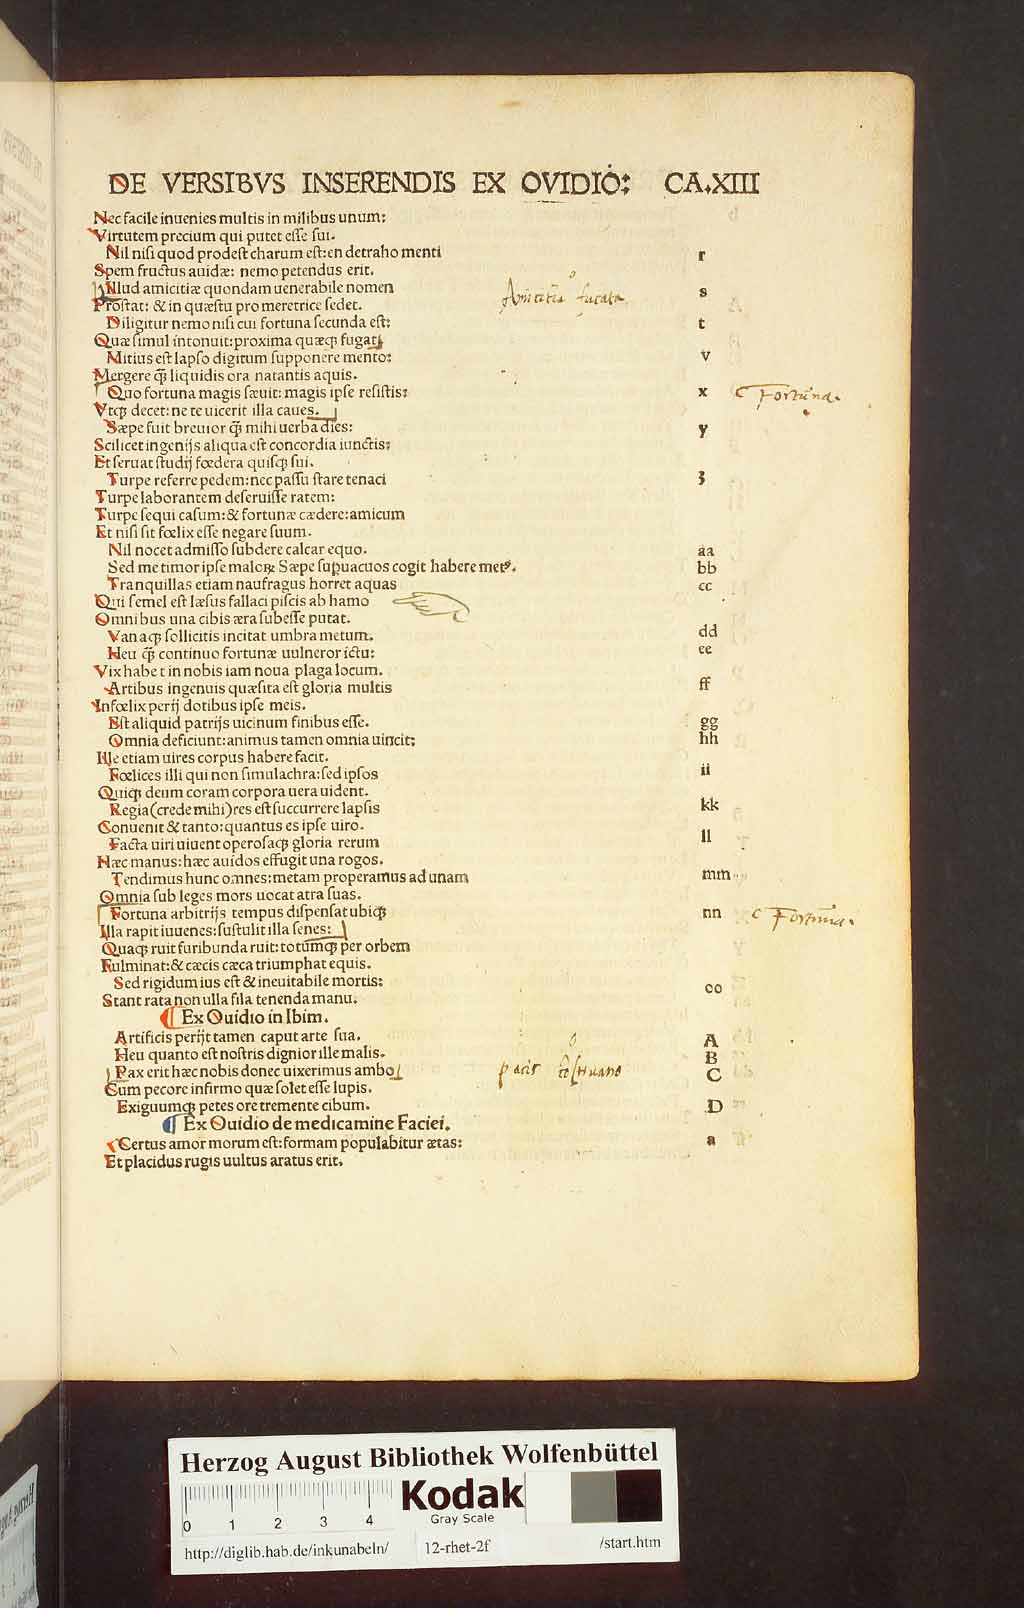 DE VERSIBVS INSERENDIS EX OVIDIO: CA.XIII
Nec facile inuenies multis in milibus unum:
Virtutem precium qui putet esse sui.
Nil nisi quod prodest charum est: en detraho menti r
Spem fructus auidæ: nemo petendus erit.
Illud amicitiæ quondam uenerabile nomen s
Amicitia fucata
Prostat: & in quæstu pro meretrice sedet.
Diligitur nemo nisi cui fortuna secunda est: t
Quæ simul intonuit: proxima quæq; fugat
Mitius est lapso digitum supponere mento: v
Mergere q̃ liquidis ora natantis aquis.
Quo fortuna magis sæuit: magis ipse resistis: x
Fortuna.
Vtq; decet: ne te uicerit illa caues.
Sæpe fuit breuior q̃ mihi uerba dies: y
Scilicet ingenijs aliqua est concordia iunctis:
Et seruat studij fœdera quisq; sui.
Turpe referre pedem: nec passu stare tenaci z
Turpe laborantem deseruisse ratem:
Turpe sequi casum: & fortunæ cædere: amicum
Et nisi sit fœlix esse negare suum.
Nil nocet admisso subdere calcar equo. aa
Sed me timor ipse maloꝝ Sæpe suꝑuacuos cogit habere metꝰ. bb
Tranquillas etiam naufragus horret aquas cc
Qui semel est læsus fallaci piscis ab hamo
Omnibus una cibis æra subesse putat.
Vanaq; sollicitis incitat umbra metum. dd
Heu q̃ continuo fortunæ uulneror ictu: ee
Vix habet in nobis iam noua plaga locum.
Artibus ingenuis quæsita est gloria multis ff
Infœlix perij dotibus ipse meis.
Est aliquid patrijs uicinum finibus esse. gg
Omnia deficiunt: animus tamen omnia uincit: hh
Ille etiam uires corpus habere facit.
Fœlices illi qui non simulachra: sed ipsos ii
Quiq; deum coram corpora uera uident.
Regia (crede mihi) res est succurrere lapsis kk
Conuenit & tanto: quantus es ipse uiro.
Facta uiri uiuent operosaq; gloria rerum ll
Hæc manus: hæc auidos effugit una rogos.
Tendimus hunc omnes: metam properamus ad unam mm
Omnia sub leges mors uocat atra suas.
Fortuna arbitrijs tempus dispensat ubiq; nn
Fortuna.
Illa rapit iuuenes: sustulit illa senes:
Quaq; ruit furibunda ruit: totumq; per orbem
Fulminat: & cæcis cæca triumphat equis.
Sed rigidum ius est & ineuitabile mortis: oo
Stant rata non ulla fila tenenda manu.
Ex Ouidio in Ibim.
Artificis perijt tamen caput arte sua. A
Heu quanto est nostris dignior ille malis. B
Pax erit hæc nobis donec uixerimus ambo C
pacis
Cum pecore infirmo quæ solet esse lupis.
Exiguumq; petes ore tremente cibum. D
Ex Ouidio de medicamine Faciei.
Certus amor morum est: formam populabitur ætas: a
Et placidus rugis uultus aratus erit.
Herzog August Bibliothek Wolfenbüttel
0 1 2 3 4
Kodak
Gray Scale
http://diglib.hab.de/inkunabeln/ 12-rhet-2f /start.htm